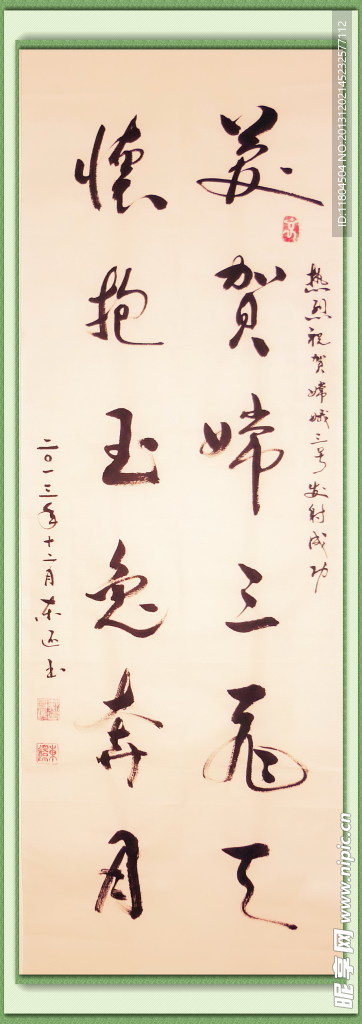 热烈祝贺嫦娥三号发射成功
美贺嫦三飞天
怀抱玉兔奔月
二〇一三年十二月
ID:11804504 NO:20131202145232577112
昵享网 www.nipic.cn